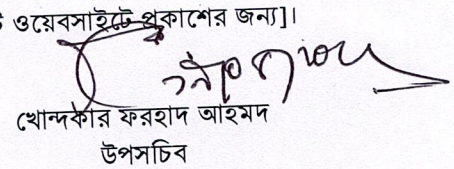 ওয়েবসাইটে প্রকাশের জন্য]।
খোন্দকার ফরহাদ আহমদ
উপসচিব